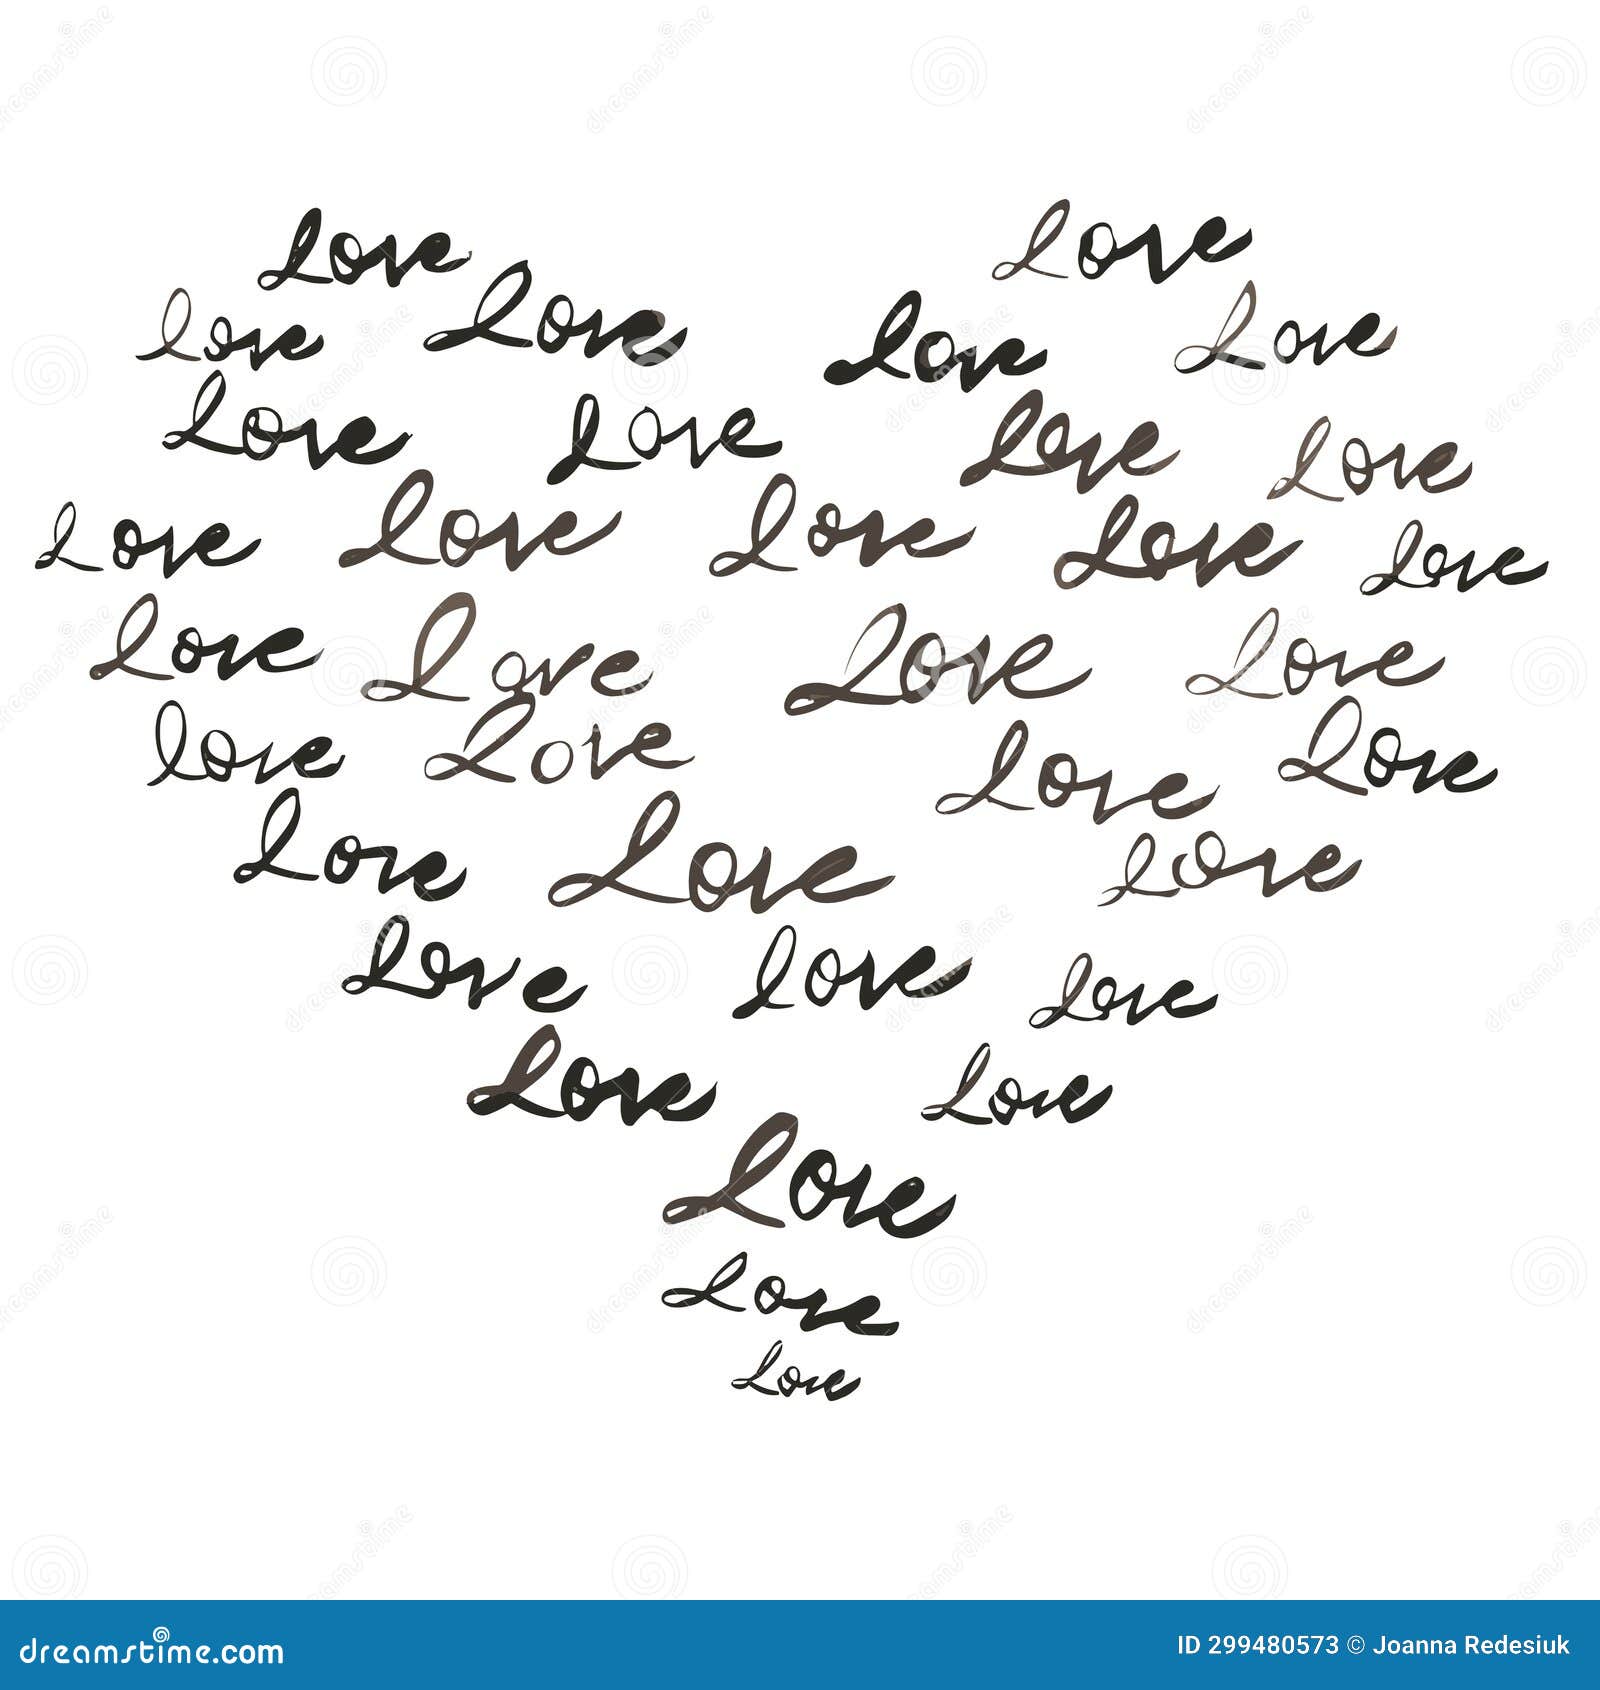 Love Love
love Love Love Love
Love Love Love Love
Love Love Love Love Love
Love Love Love Love
love Love Love Love
Love Love Love
Love love Love
Love Love
Love
Love
Love
dreamstime.com ID 299480573 © Joanna Redesiuk